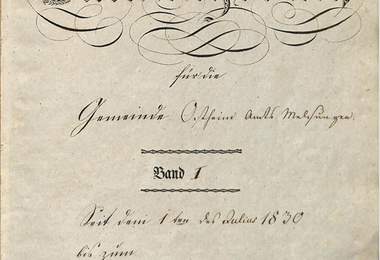 für die
Gemeinde Ostheim Amts Melsungen.
Band I
Seit dem 1ten des Julius 1830
bis zum